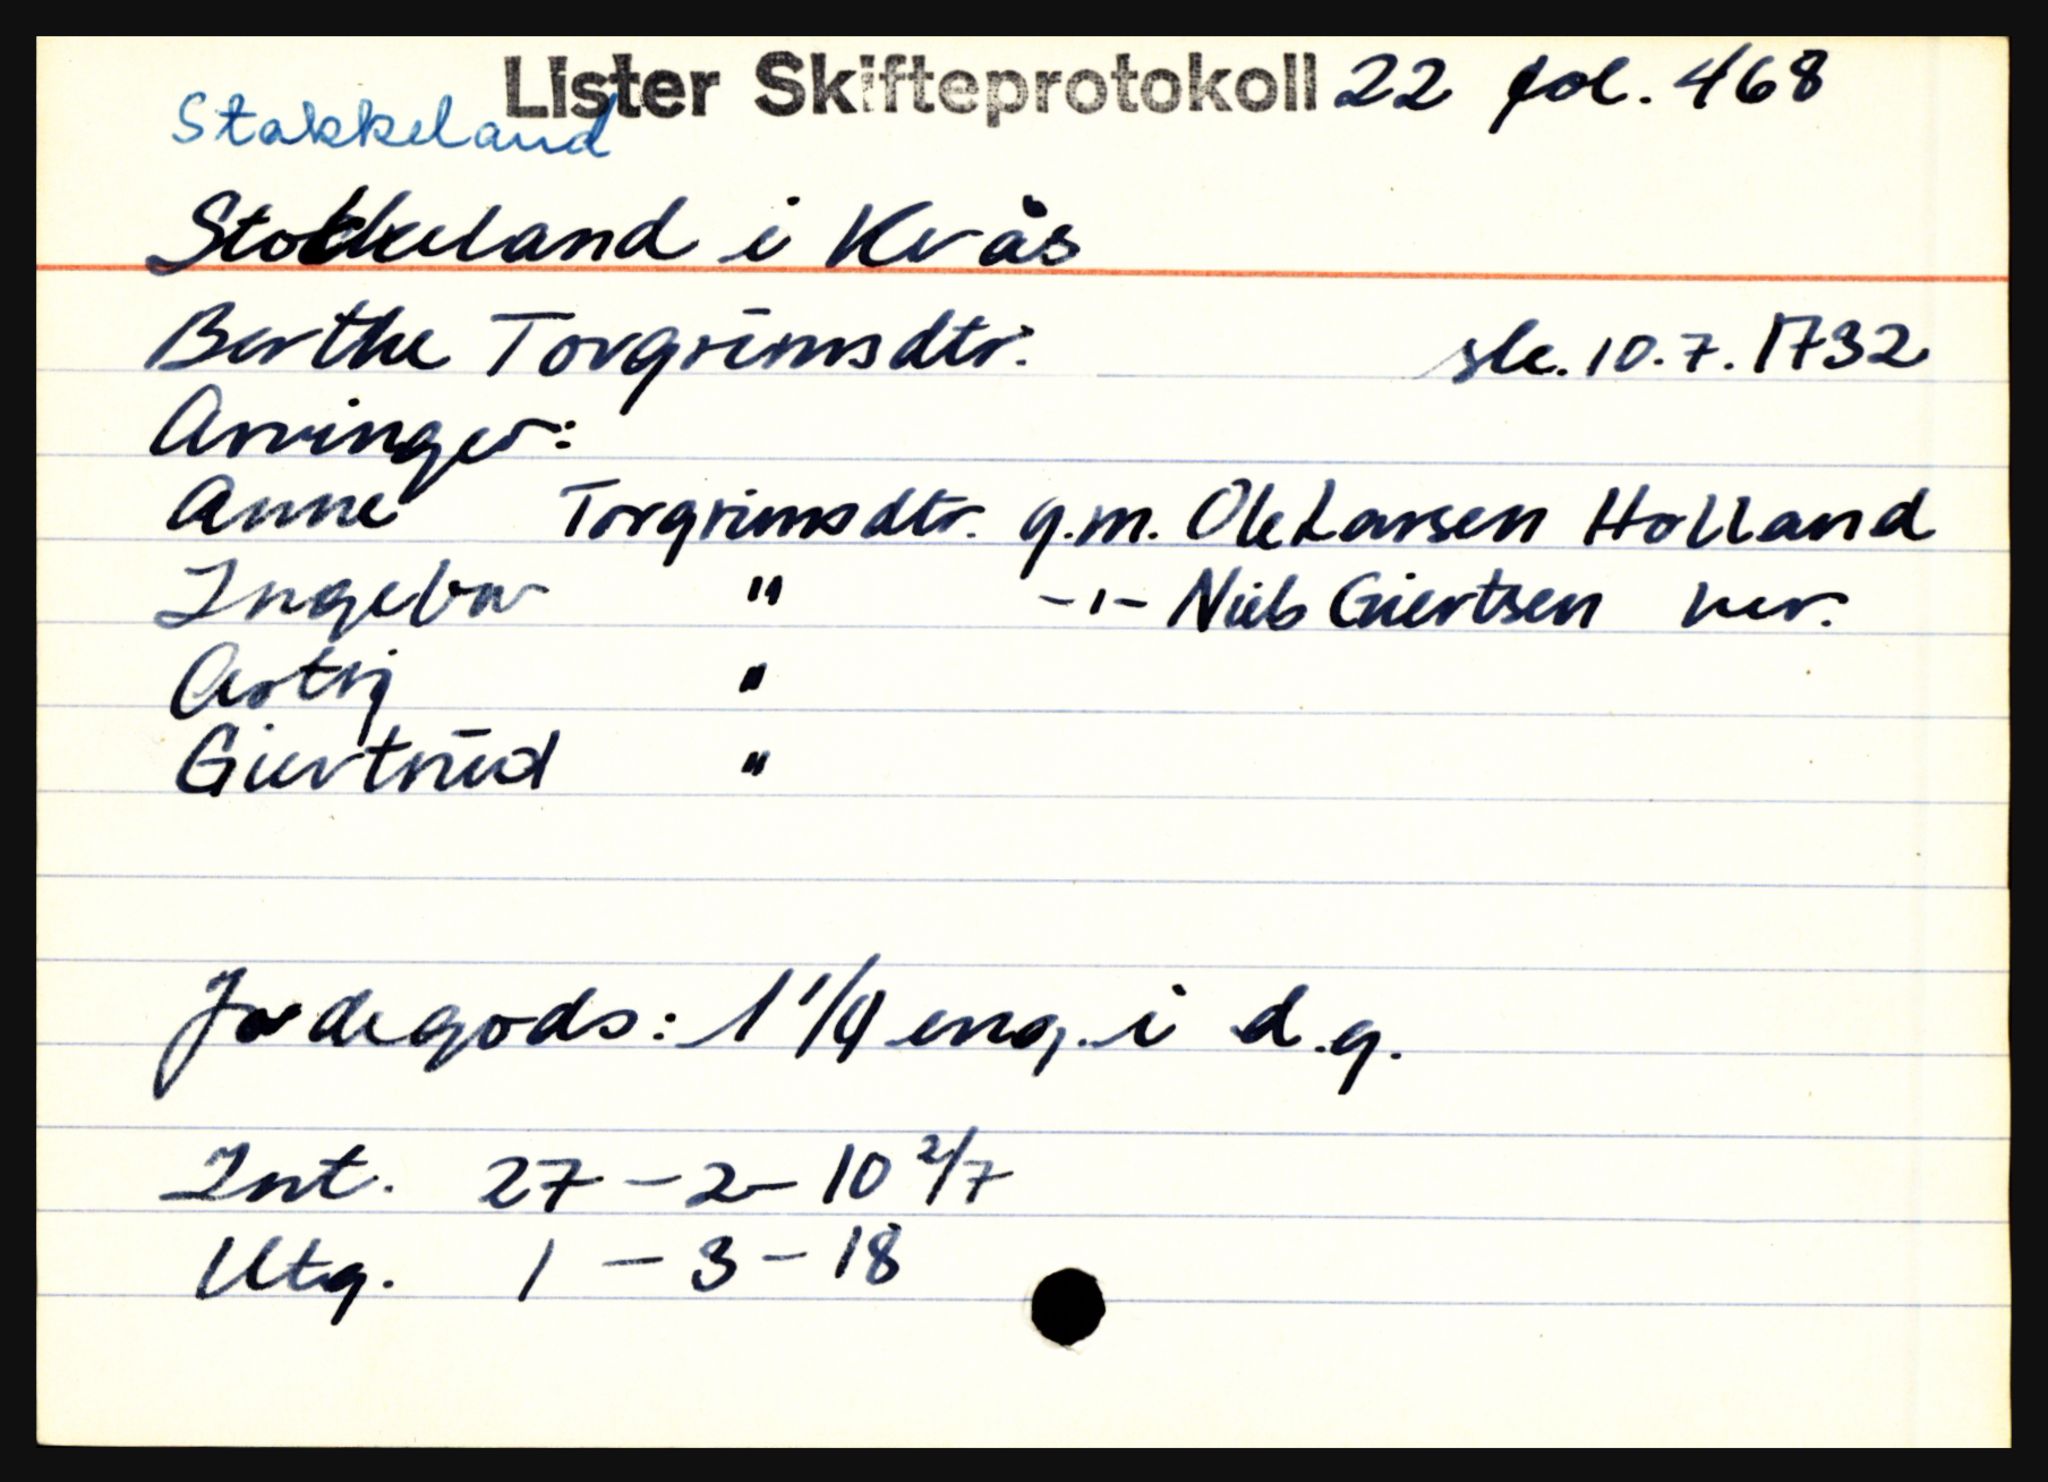 Lister Skifteprotokoll 22 fol. 468
Stakkeland
Stokkeland i Kvås
Berthe Torgrimsdtr. sle. 10.7.1732
Arvinger:
Anne Torgrimsdtr. g.m. Ole Larsen Holland
Ingebor " -"- Niels Giertsen her.
Astrj "
Giertrud "
Jordegods: 1 1/4 eng. i d.g.
Int. 27 - 2 - 10 2/7
Utg. 1 - 3 - 18